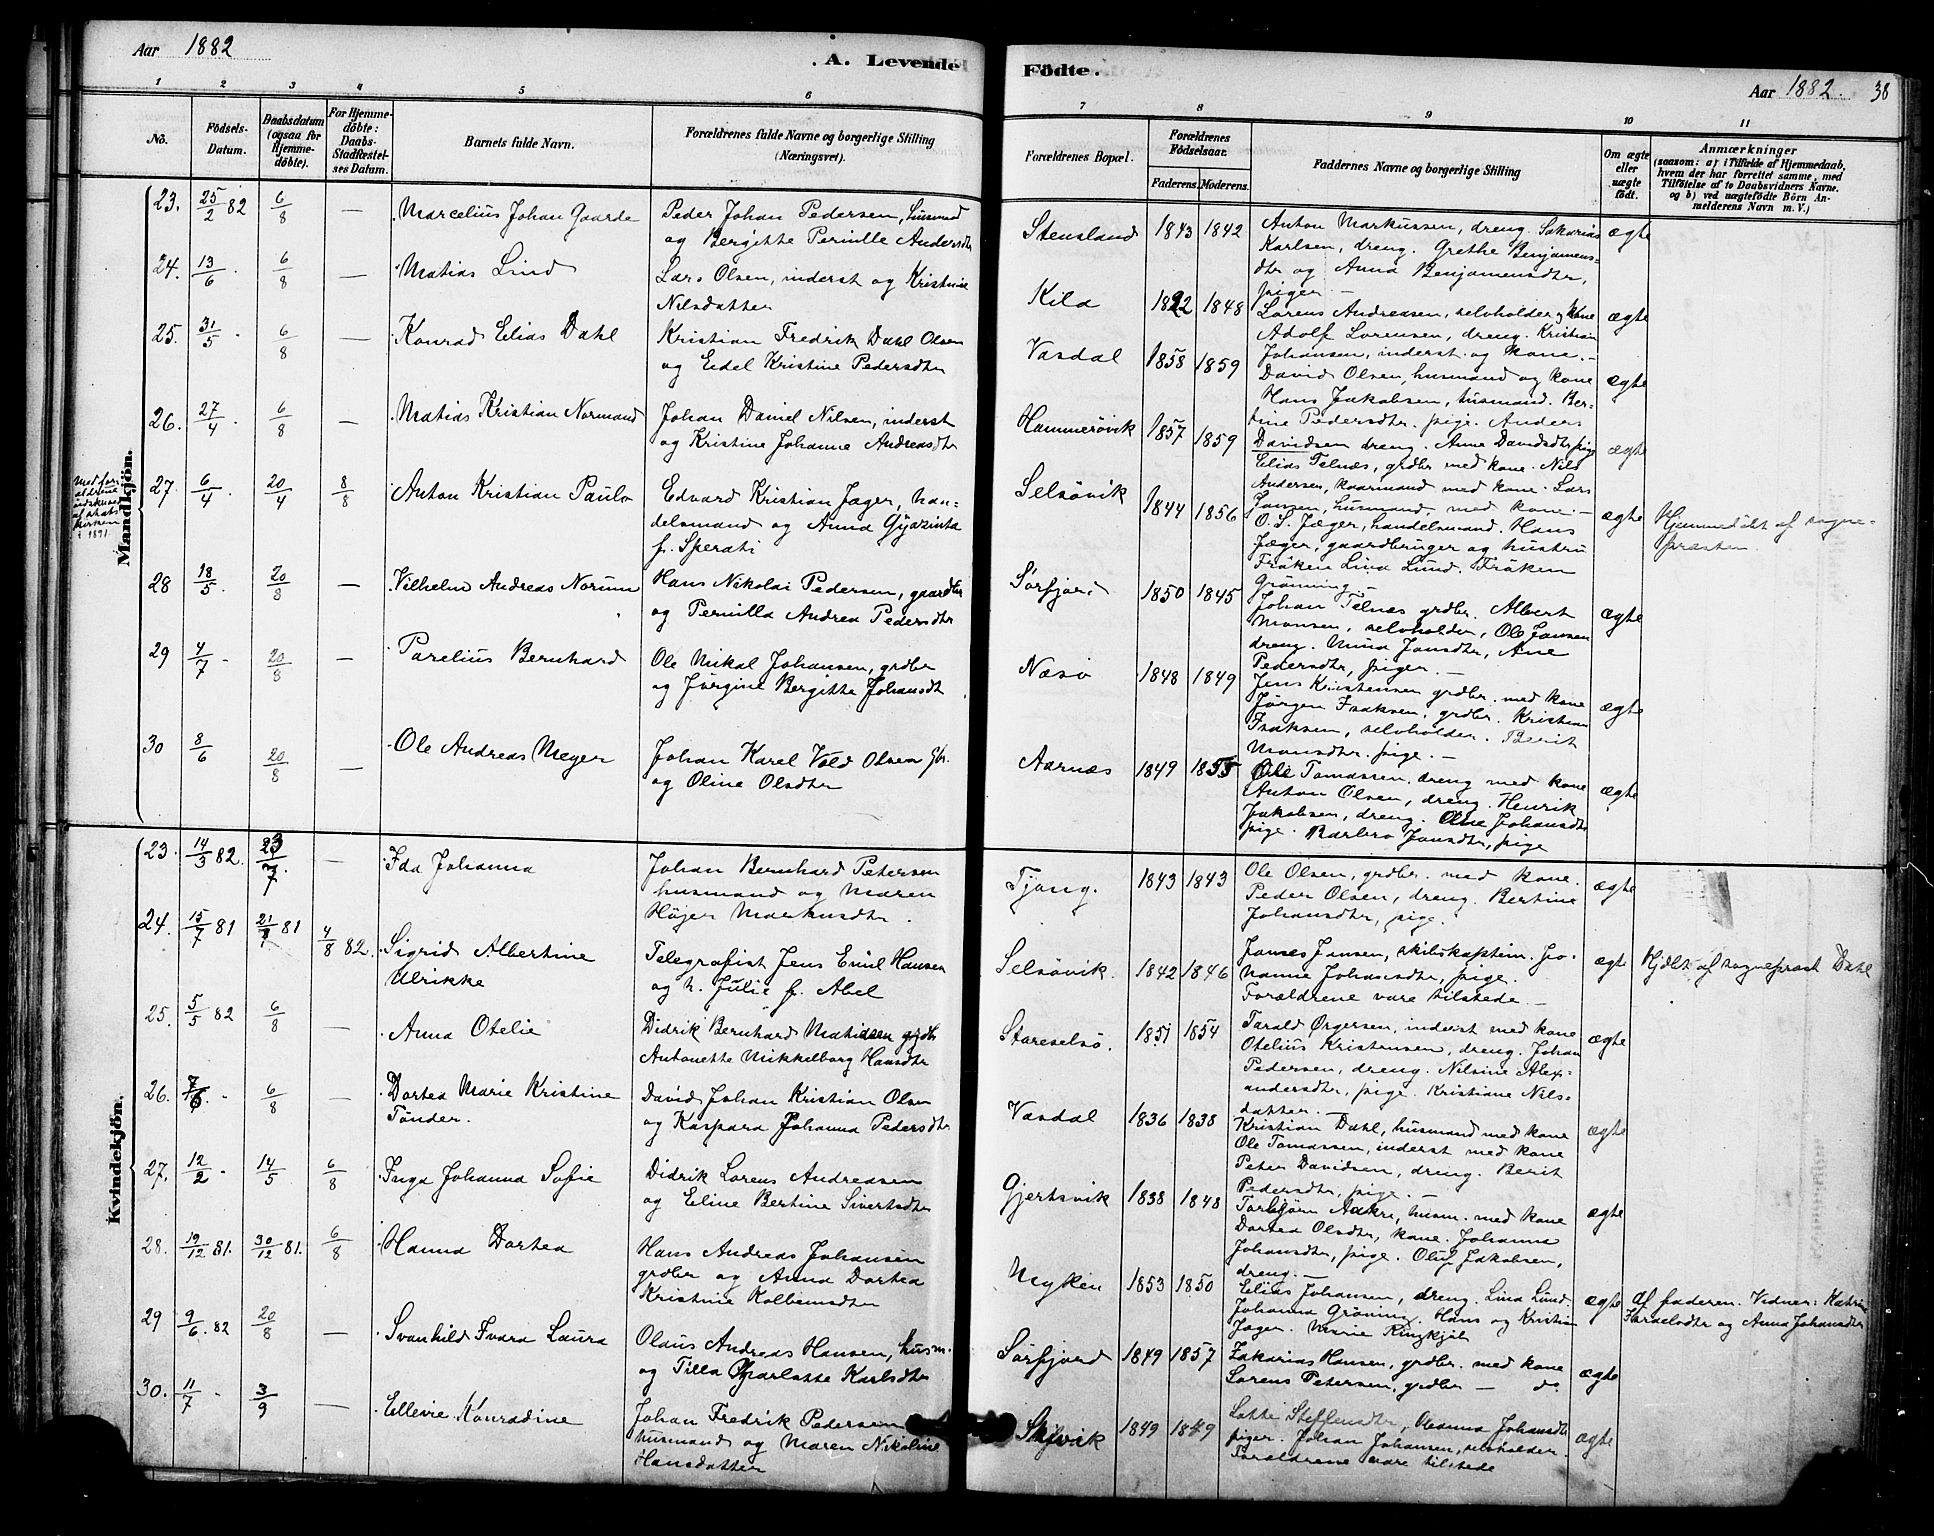 Aar 1882
A. Levende
1 2 3 4 5 6
No.
Födsels-Datum.
Daabsdatum (ogsaa for Hjemme-döbte).
For Hjemme-döbte: Daabs-Stadfæstel-ses Datum.
Barnets fulde Navn.
Forældrenes fulde Navne og borgerlige Stilling
(Næringsvei).
Mandkjön.
23. 25/2 82 6/8 — Marcelius Johan Gaarde
Peder Johan Pedersen, husmd
og Bergitte Pernille Andersdtr
24. 13/6 6/8 — Matias Lind
Lars Olsen, inderst og Kristine
Nilsdatter
25. 31/5 6/8 — Konrad Elias Dahl
Kristian Fredrik Dahl Olsen
og Edel Kristine Pedersdtr
26. 27/4 6/8 — Matias Kristian Normand
Johan Daniel Nilsen, inderst
og Kristine Johanne Andreasdtr
27. 6/4 20/4 8/8 Anton Kristian Paulo
Edvard Kristian Jæger, han-
delsmand og Anna Gijazinta
f. Sperati
28 18/5 20/8 — Vilhelm Andreas Norum
Hans Nikolai Pedersen, gaardbr
og Pernilla Andrea Pedersdtr
29 4/7 20/8 — Parelius Bernhard
Ole Mikal Johansen, grdbr
og Jörgine Bergitte Johansdt
30 8/6 20/8 — Ole Andreas Meyer
Johan Karel Vold Olsen
og Oline Olsdtr
Kvindekjön.
23. 14/5 82. 23/7. — Ida Johanna
Johan Bernhard Petersen
husmand og Maren
Höjer Markusdtr.
24. 15/7 81 21/9 81 4/8 82. Sigrid Albertine
Ulrikke
Telegrafist Jens Emil Hansen
og h. Julie f. Abel
25. 5/5 82 6/8 — Anna Otelie
Didrik Bernhard Matiasen grdbr
Antonette Mikkelborg Hansdtr
26. 7/6 6/8 — Dortea Marie Kristine
Tönder.
David Johan Kristian Olsen
og Kaspara Johanna Pedersdtr
27. 12/2 14/5 6/8 Inga Johanna Sofie
Didrik Lorens Andreasen
og Eline Bertine Sivertsdtr
28. 19/12 81. 30/12 81. 6/8 Hanna Dortea
Hans Andreas Johansen
grdbr og Anna Dortea
Kristine Kolbensdtr
29 9/6 82 20/8 — Svanhild Ivara Laura
Olaus Andreas Hansen, husm.
og Tilla Charlotte Karlsdtr
30. 11/7 3/9 — Ellevie Konradine
Johan Fredrik Pedersen
husmand og Maren Nikoline
Hansdatter
Födte.
Aar 1882. 38
7 8 9 10 11
Forældrenes Bopæl.
Forældrenes Födselsaar.
Faderens. Moderens.
Faddernes Navne og borgerlige Stilling
Om ægte eller uægte födt.
Anmærkninger
(saasom: a) i Tilfælde af Hjemmedaab,
hvem der har forrettet samme, med
Tilföielse af to Daabsvidners Navne.
og b) ved uægtefödte Börn An-
melderens Navn m. V.)
Stensland 1843 1842 ægte
Anton Markussen, dreng. Sakarias
Karlsen, dreng. Grethe Benjamens-
dtr og Anna Benjamensdtr,
piger. —
Kila 1822 1848 ægte
Lorens Andreasen, selvholder og kone
Adolf Lorensen, dreng. Kristian
Johansen, inderst og kone. —
Vasdal 1858 1859 ægte
David Olsen, husmand og kone
Hans Jakobsen, husmand. Ber-
tine Pedersdtr. pige. Anders
Davidsen dreng. Anne Davidsdtr pige
Hammerövik 1857 1859 ægte
Elias Telnæs, grdbr med kone. Nils
Andersen, kaarmand med kone. Lars
Jansen, husmand, med kone. —
Selsövik 1844 1856 ægte
O. S. Jæger, handelsmand. Hans
Jæger, gaardbruger og hustru
Fröken Lina Lund. Fröken
Grönning —
Hjemmedöbt af sogne-
præsten
Sörfjord 1850 1845 ægte
Johan Telnæs grdbr. Albert
Monsen, selvholder, Ole Jansen
dreng. Mina Jonsdtr, Ane
Pedersdtr, piger. —
Næsö 1848 1849 ægte
Jens Kristensen grdbr. med kone
Jörgen Isaksen, grdbr. Kristian
Isaksen, selvholder. Berit
Monsdtr. pige. —
Aarnæs 1849 1855 ægte
Ole Tomassen, dreng med kone
Anton Olsen, dreng. Henrik
Jakobsen, dreng. Oline Johansdtr
pige. Barbro Jonsdtr, pige
Tjong. 1843 1843 ægte
Ole Olsen, grdbr. med kone.
Peder Olsen, dreng. Bertine
Johansdtr, pige.
Selsövik. 1842 1846 ægte
James Jansen, skibskaptein. Jo-
hanne Johansdtr, pige.
Forældrene vare tilstede. —
Hjdbt af sognepræst Dahl
Storeselsö. 1851 1854 ægte
Tarald Örgersen, inderst med kone
Otelius Kristensen, dreng. Johan
Pedersen, dreng. Nilsine Alex-
andersdtr, pige. Kristiane Nils-
datter. —
Vasdal 1836 1838 ægte
Kristian Dahl, husmand med kone
Ole Tomassen, inderst med kone
Peter Davidsen, dreng. Berit
Pedersdtr, pige. —
Gjertsvik 1838 1848 ægte
Torbjörn Aakre, husm. med kone
Dortea Olsdtr, kone. Johanna
Johansdtr, pige. Oluf Jakobsen,
dreng. —
Myken 1853 1850 ægte
Elias Johansen, dreng. Lina Lund.
Johanna Gröning. Hans og Kristian
Jæger. Marie Ringkjöb
af faderen. Vidner: Katrine
og Anna Johansdtr
Sörfjord 1849 1857 ægte
Zakarias Hansen, grdbr. med kone
Lorens Petersen, grdbr — do
Skjevik 1849 1849 ægte
Lotte Steffensdtr, Oleanna Johansdtr
piger. Johan Johansen, selvholder.
Forældrene vare tilstede